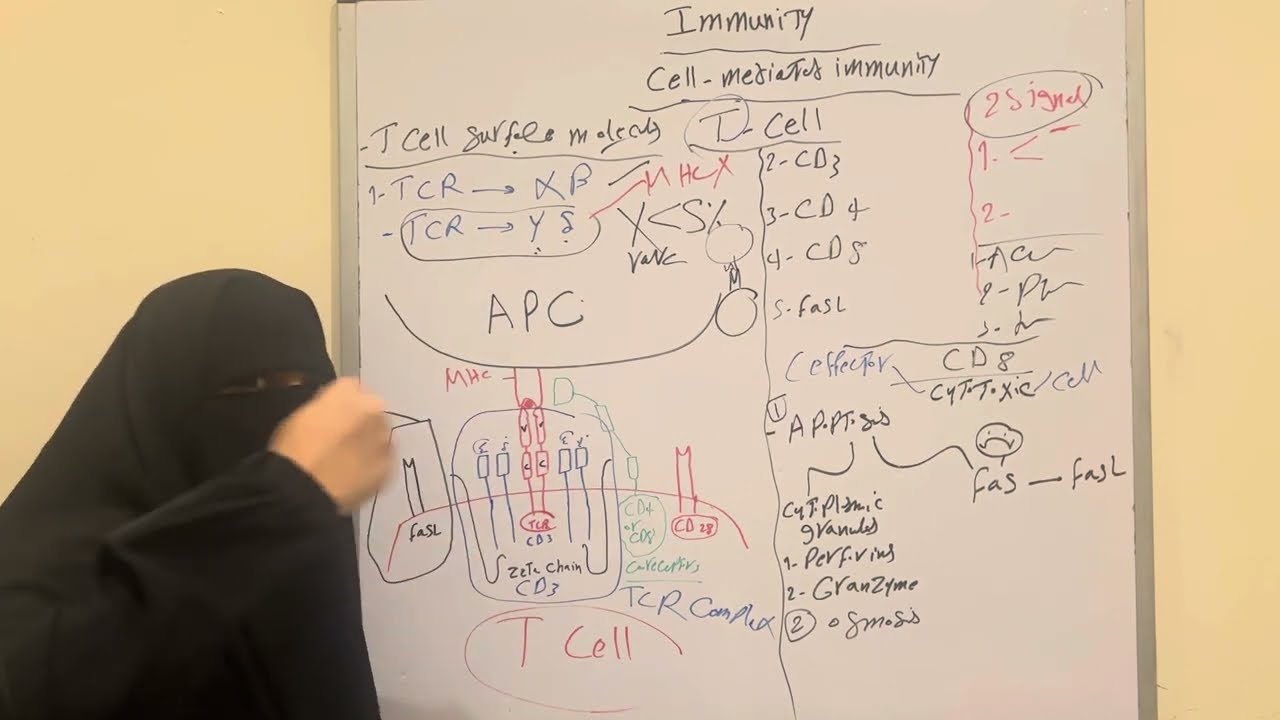 Immunity
Cell-mediated immunity
- T Cell surface molecules
T-Cell
2 Signal
1- TCR → αβ
MHC X
- TCR → γ δ
γ < 5%
rare
2- CD3
3- CD4
4- CD8
5- FasL
1-
2-
1-
2-
3-
APC
MHC
M
M
FasL
V V
C C
TCR
CD3
Zeta Chain
CD3
CD4
or
CD8
Coreceptors
CD28
TCR Complex
T Cell
effector
CD8
cytotoxic cell
① - Apoptosis
Fas — FasL
Cytoplasmic
granules
1- Perforins
2- Granzyme
② osmosis